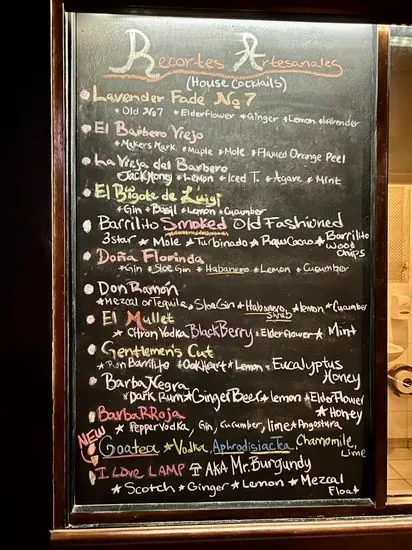 Recortes Artesanales
(House Cocktails)
Lavender Fade No 7
* Old No7 * Elderflower * Ginger * Lemon * Lavender
El Barbero Viejo
* Makers Mark * Maple * Mole * Flamed Orange Peel
La Vieja del Barbero
* Jack Honey * Lemon * Iced T. * Agave * Mint
El Bigote de Luigi
* Gin * Basil * Lemon * Cucumber
Barrilito Smoked Old Fashioned
3 star * Mole * Turbinado * Raw Cacao * Barrilito
Wood
Chips
Doña Florinda
* Gin * Sloe Gin * Habanero * Lemon * Cucumber
Don Ramon
* Mezcal or Tequila, Sloe Gin * Habanero * lemon * Cucumber
Shrub
El Mullet
* Citron Vodka BlackBerry * Elderflower * Mint
Gentlemen's Cut
* Ron Barrilito * Oak Heart * Lemon * Eucalyptus
Honey
Barba Negra
* Dark Rum * Ginger Beer * lemon * Elder Flower
* Honey
BarbaRRoja
* Pepper Vodka, Gin, Cucumber, lime * Angostura
NEW
Goatea * Vodka, AphrodisiacTea, Chamomile,
Lime
I Love LAMP AKA Mr. Burgundy
* Scotch * Ginger * Lemon * Mezcal
Float